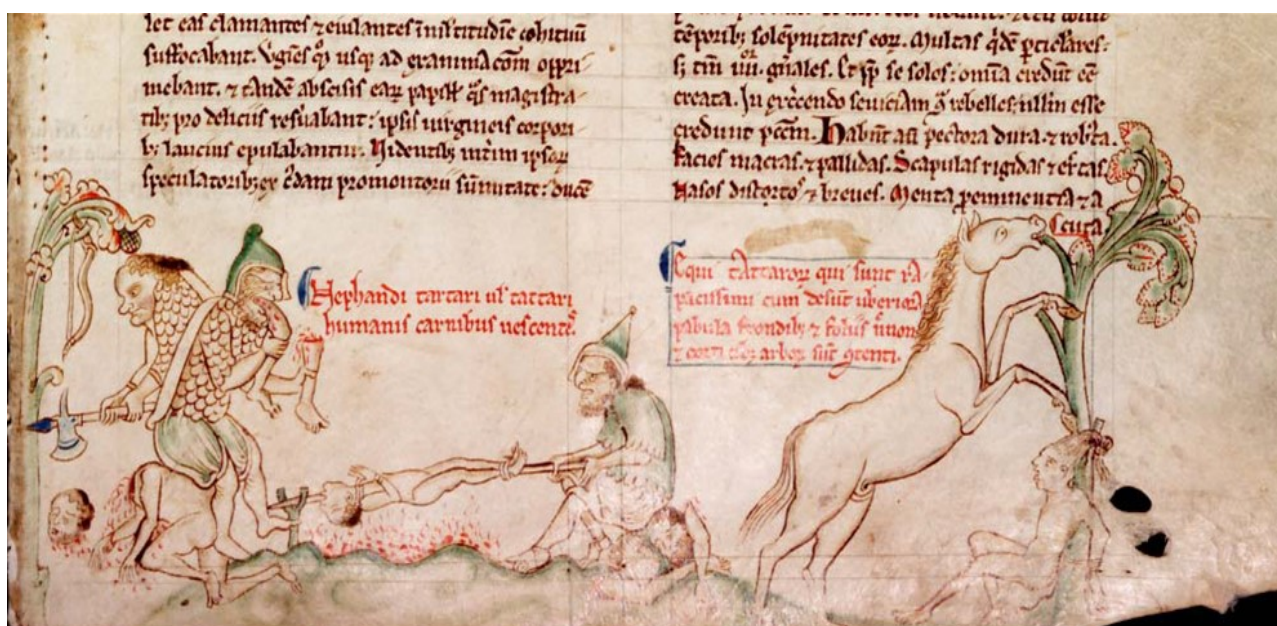 let eas clamantes ⁊ eiulantes in multitudīe cohituū
suffocabant. Vgīes q̊ usq; ad exanimacōm oppri
mebant. ⁊ tandē abscisis eaꝝ papill' q̄s magistra
tib; pro deliciis res̄uabant: ipsis uirgineis corpori
b; laucius epulabantur. Videntib; int̄im ipsoꝝ
speculatorib; ex promontorii sūmitate: ducē
Nephandi tartari ul' tattari
humanis carnibus uescentes.
tēporib; solēpnitates eoꝝ. Multas q̄dē particlares:
s; tm̄ iiii. gn̄ales. Et ꝓp̄ se solos: omīa credūt eē
creata. In exercendo seuiciam ī rebelles: nullm̄ esse
credunt pcc̄m. Habūt aū pectora dura ⁊ robusta.
facies macras. ⁊ pallidas. Scapulas rigidas ⁊ erc̄tas.
Nasos distorto' ⁊ breues. Menta p̄eminentia ⁊ a
Cuta
Equi tattaroꝝ qui sunt ra
pacissimi cum desūt uberiora
pabula frondib; ⁊ foliis
⁊ corti arboꝝ sūt ꝯtenti.